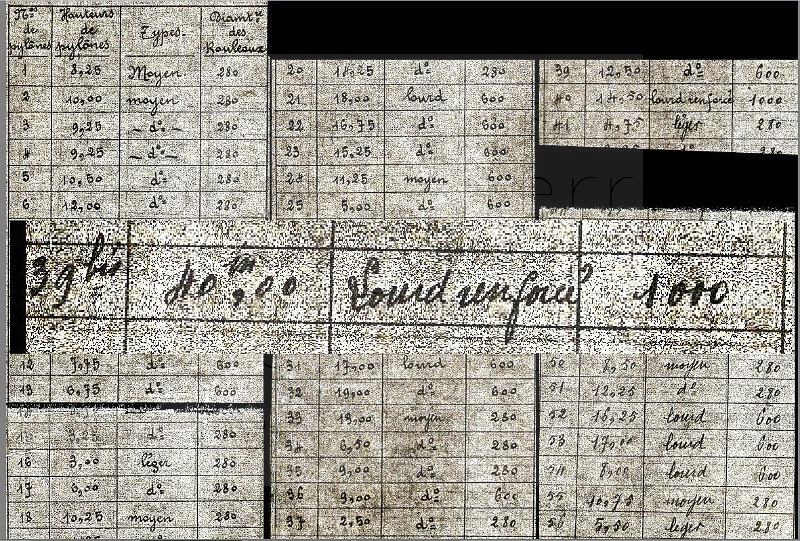 Nos de pylônes Hauteurs de pylônes Types. Diamtre des Rouleaux
1 8,25 Moyen 280
2 10,00 moyen 280
3 9,25 — do — 280
4 9,25 — do — 280
5 10,50 do 280
6 12,00 do 280
20 18,25 do 280
21 18,00 lourd 600
22 16,75 do 600
23 15,25 do 600
24 11,25 moyen 600
25 5,00 do 600
39 12,50 do 600
40 14,50 lourd renforcé 1000
41 4,75 léger 280
39 bis 40m,00 Lourd renforcé 1000
12 7,75 do 600
13 6,75 do 600
15 do 280
16 3,00 léger 280
17 6,00 do 280
18 10,25 moyen 280
31 17,00 lourd 600
32 19,00 do 600
33 13,00 moyen 280
34 6,50 do 280
35 9,00 do 280
36 9,00 do 600
37 2,50 do 280
50 8,50 moyen 280
51 12,25 do 280
52 16,25 lourd 600
53 17,00 lourd 600
54 8,00 lourd 600
55 10,75 moyen 280
56 5,50 leger 280